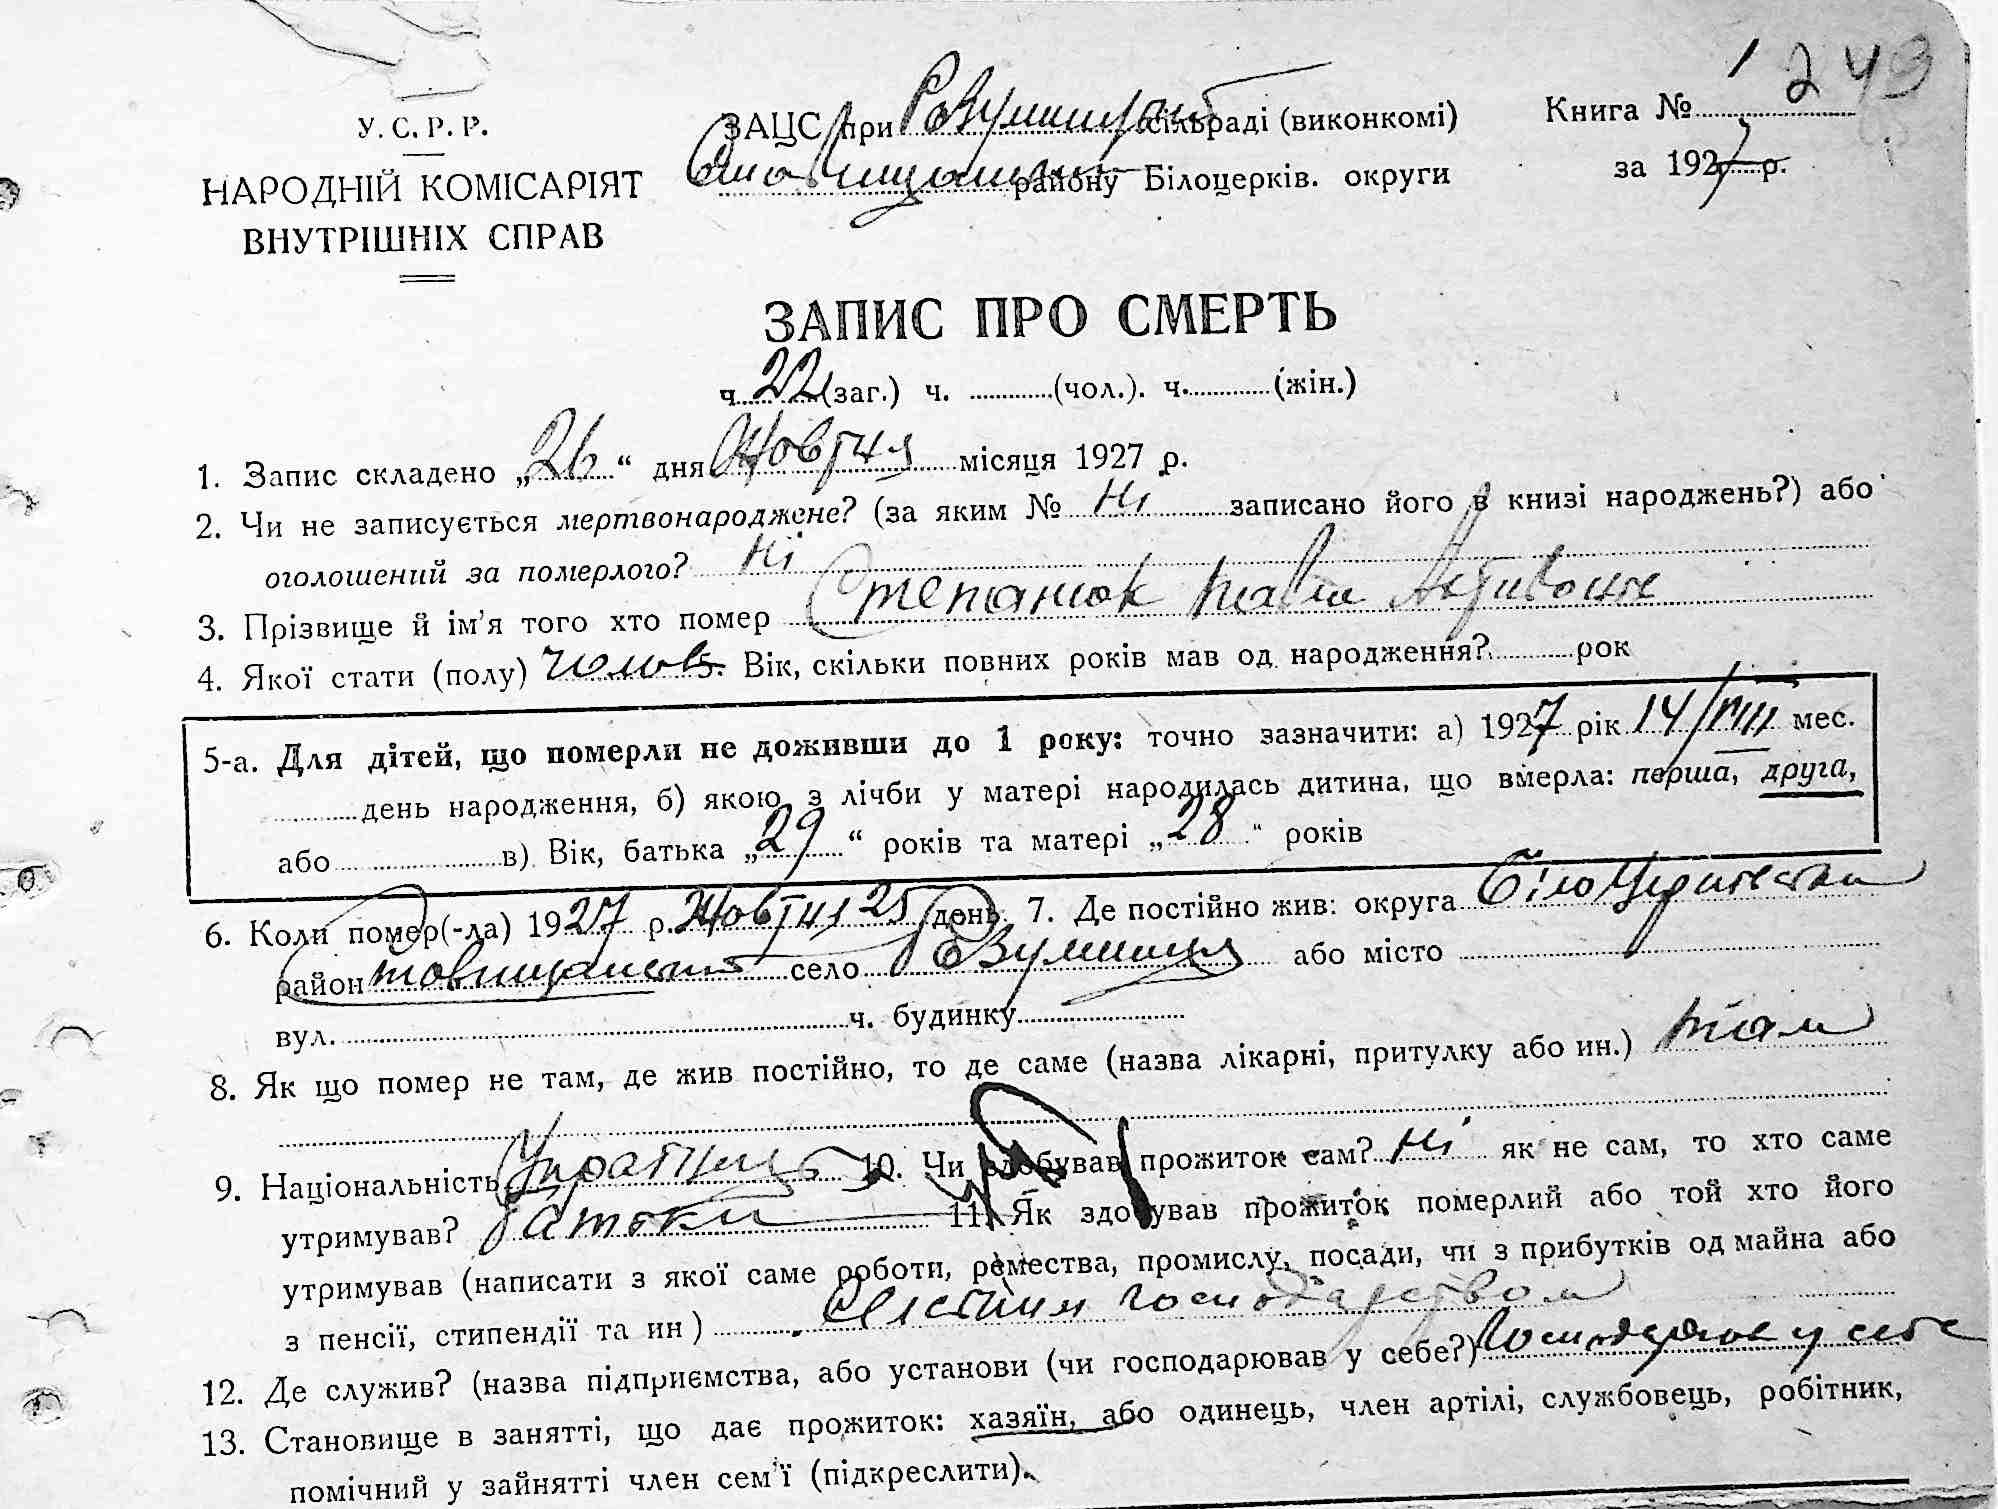 243
У. С. Р. Р.
НАРОДНІЙ КОМІСАРІЯТ
ВНУТРІШНІХ СПРАВ
ЗАЦС при сільраді (виконкомі)
району Білоцерків. округи
Книга № 1
за 1927 р.
ЗАПИС ПРО СМЕРТЬ
ч. 22 (заг.) ч. (чол.). ч. (жін.)
1. Запис складено „26“ дня Жовтня місяця 1927 р.
2. Чи не записується мертвонароджене? (за яким № Ні записано його в книзі народжень?) або
оголошений за померлого? Ні
3. Прізвище й ім'я того хто помер Степанюк
4. Якої стати (полу) Чолов. Вік, скільки повних років мав од народження? рок
5-а. Для дітей, що померли не доживши до 1 року: точно зазначити: а) 1927 рік 14/VIII мес.
день народження, б) якою з лічби у матері народилась дитина, що вмерла: перша, друга,
або в) Вік, батька „29“ років та матері „28“ років
6. Коли помер(-ла) 1927 р. Жовтня 25 день. 7. Де постійно жив: округа Білоцерківська
район село або місто
вул. ч. будинку
8. Як що помер не там, де жив постійно, то де саме (назва лікарні, притулку або ин.) там
9. Національність Українець 10. Чи здобував прожиток сам? Ні як не сам, то хто саме
утримував? Батьки 11. Як здобував прожиток померлий або той хто його
утримував (написати з якої саме роботи, ремества, промислу, посади, чи з прибутків од майна або
з пенсії, стипендії та ин) господарством
12. Де служив? (назва підприємства, або установи (чи господарював у себе?) у себе
13. Становище в занятті, що дає прожиток: хазяїн, або одинець, член артілі, службовець, робітник,
помічний у зайнятті член сем'ї (підкреслити).